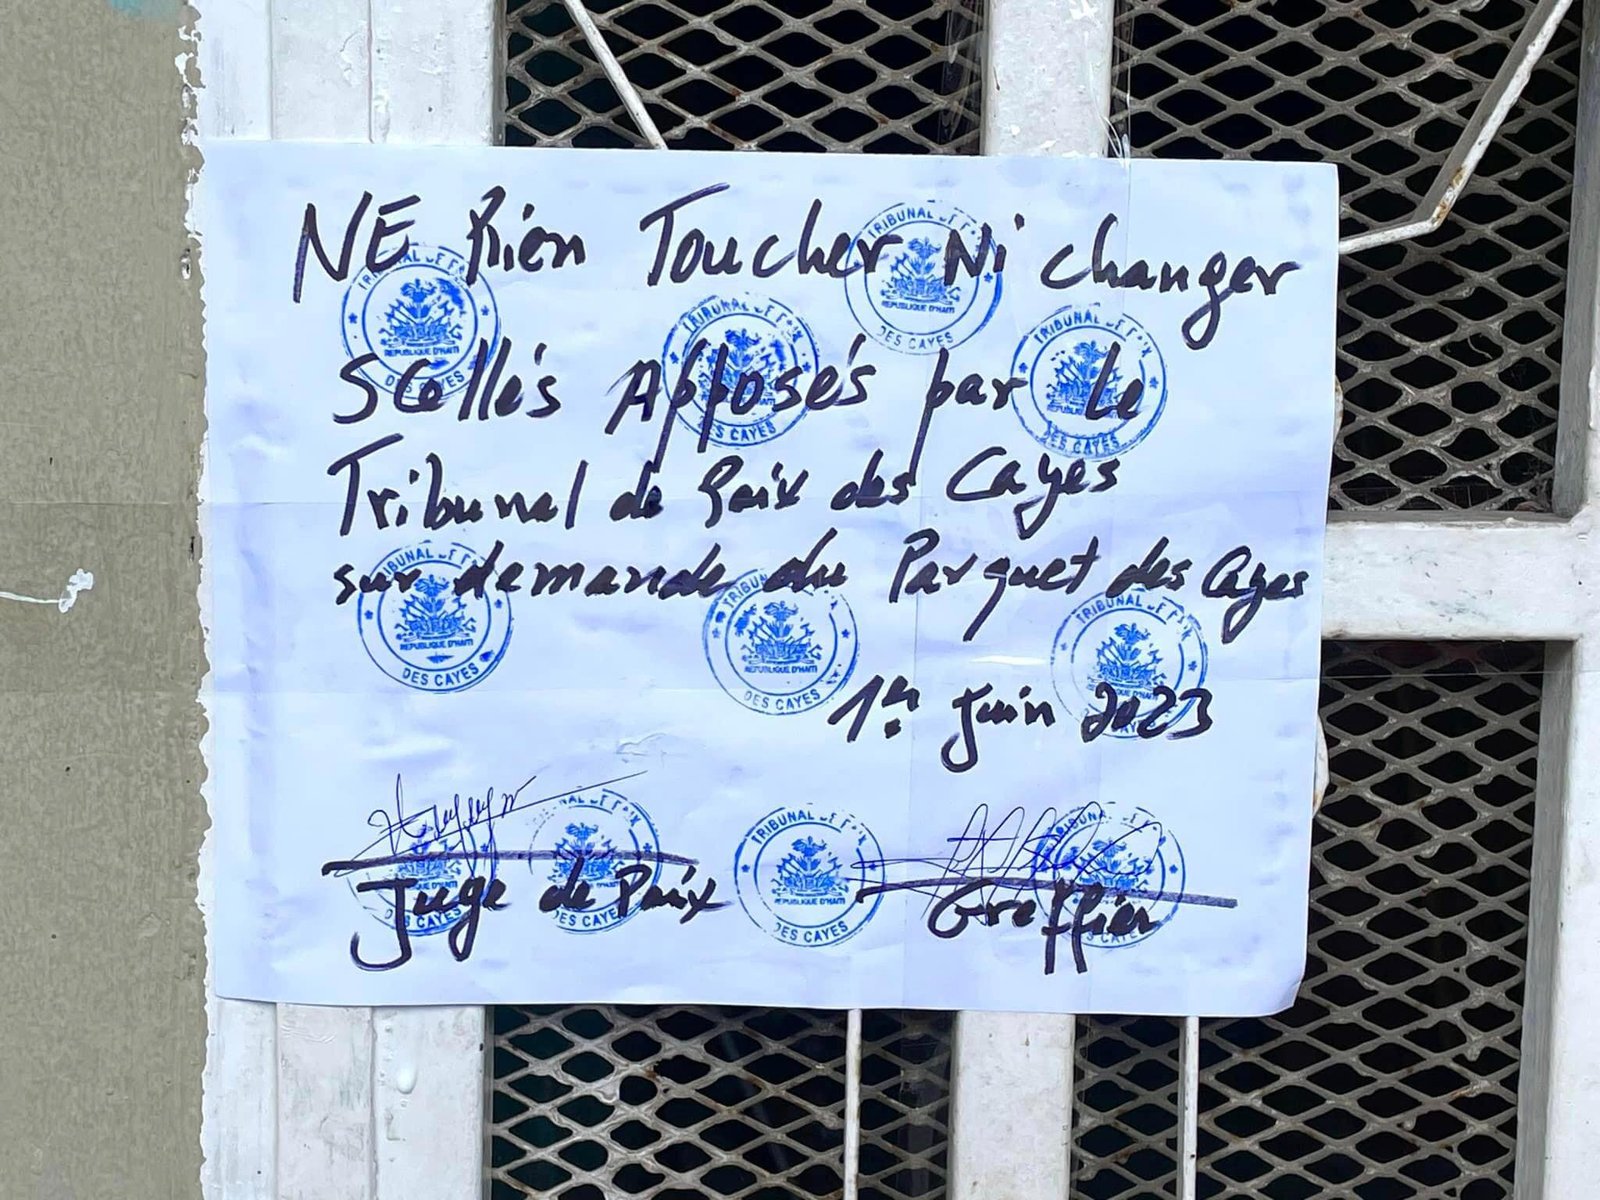 NE Rien Toucher Ni changer
Scellés Apposés par Le
Tribunal de Paix des Cayes
sur demande du Parquet des Cayes
1er Juin 2023
Juge de Paix
Greffier
TRIBUNAL DE PAIX
REPUBLIQUE D'HAITI
DES CAYES